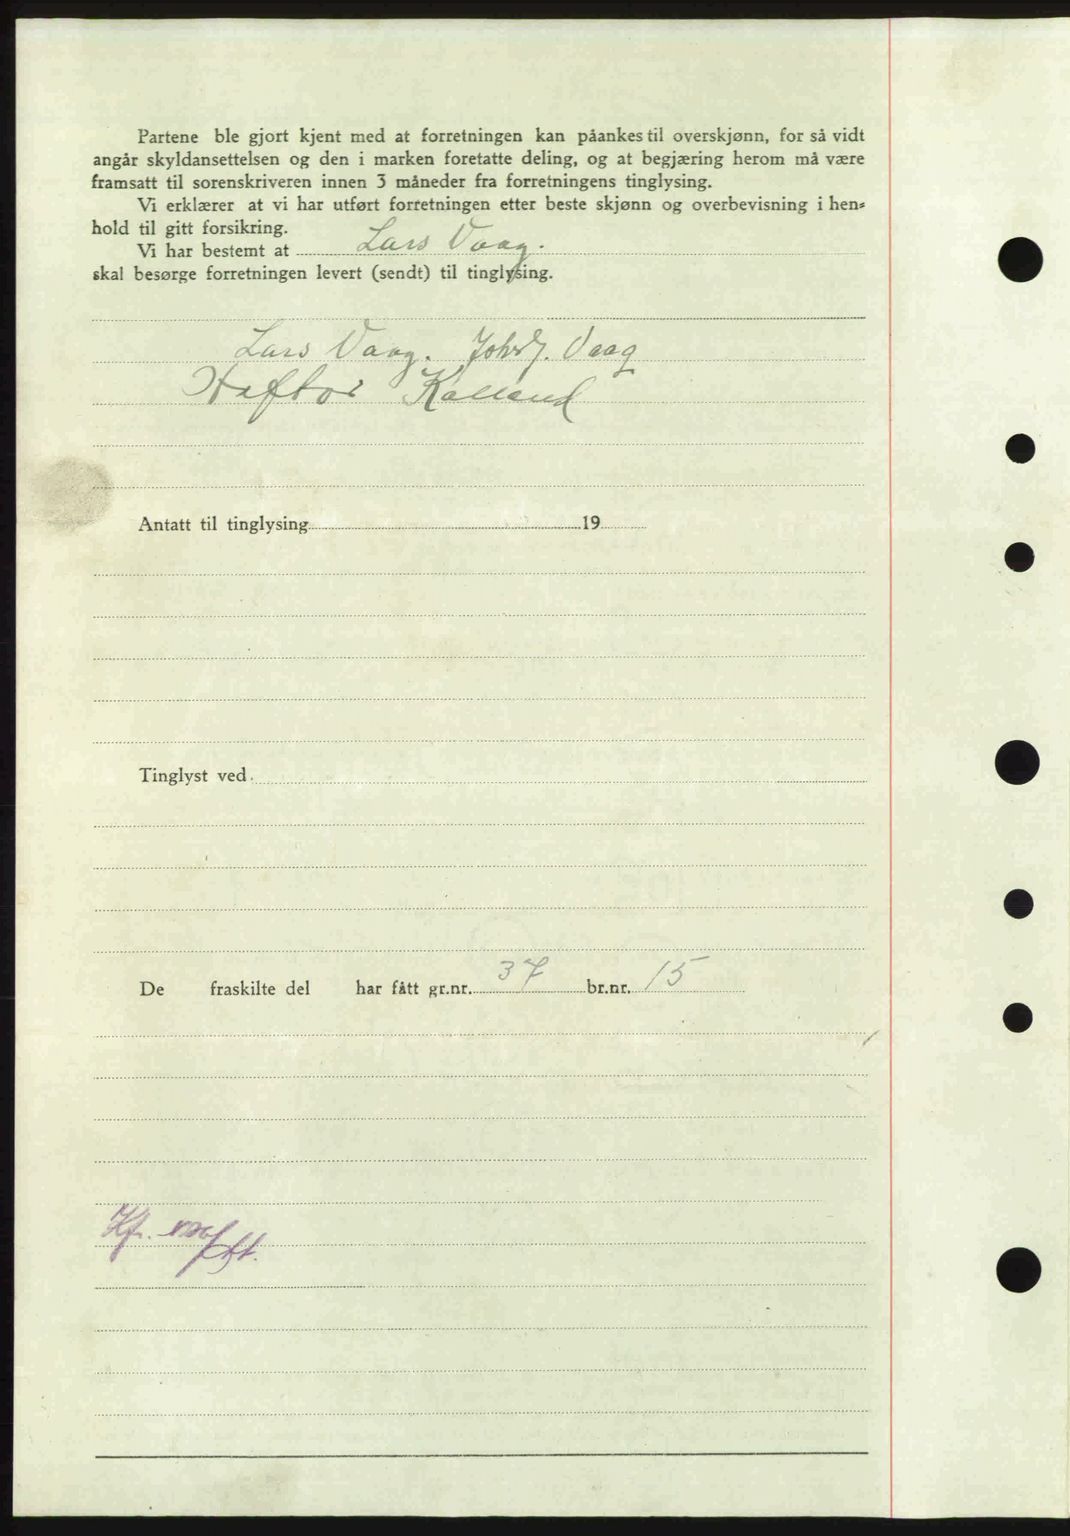 Partene ble gjort kjent med at forretningen kan påankes til overskjønn, for så vidt
angår skyldansettelsen og den i marken foretatte deling, og at begjæring herom må være
framsatt til sorenskriveren innen 3 måneder fra forretningens tinglysing.
Vi erklærer at vi har utført forretningen etter beste skjønn og overbevisning i hen-
hold til gitt forsikring.
Vi har bestemt at Lars Vaag.
skal besørge forretningen levert (sendt) til tinglysing.
Lars Vaag. Joh. J. Vaag
Haftor Kalland
Antatt til tinglysing 19
Tinglyst ved.
De fraskilte del har fått gr.nr. 37 br.nr. 15